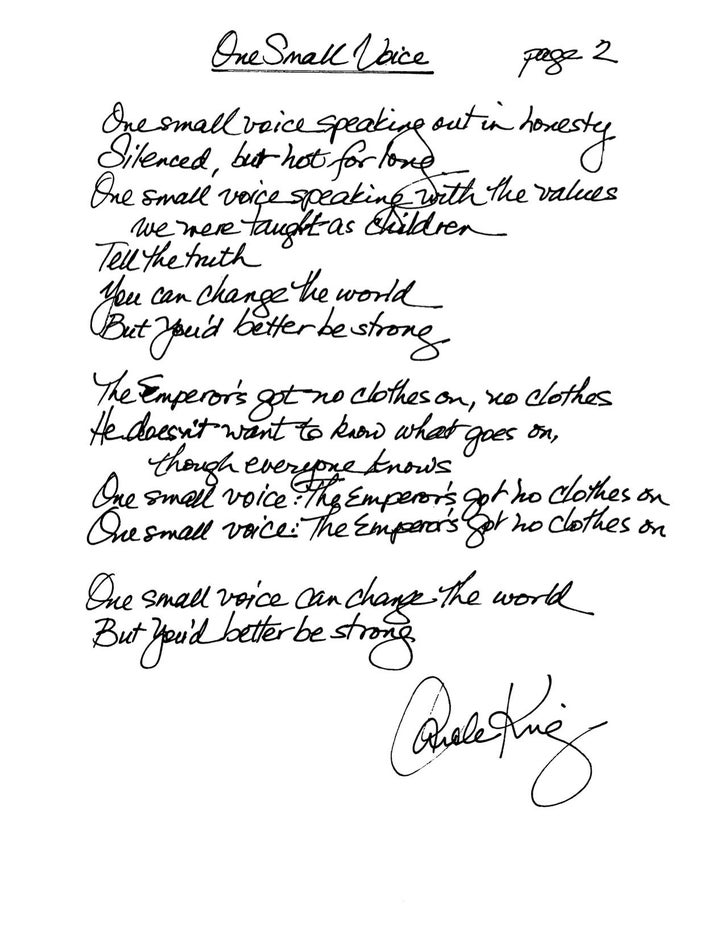 One Small Voice page 2
One small voice speaking out in honesty
Silenced, but not for long
One small voice speaking with the values
we were taught as children
Tell the truth
You can change the world
But you'd better be strong
The Emperor's got no clothes on, no clothes
He doesn't want to know what goes on,
though everyone knows
One small voice: The Emperor's got no clothes on
One small voice: The Emperor's got no clothes on
One small voice can change the world
But you'd better be strong
Carole King